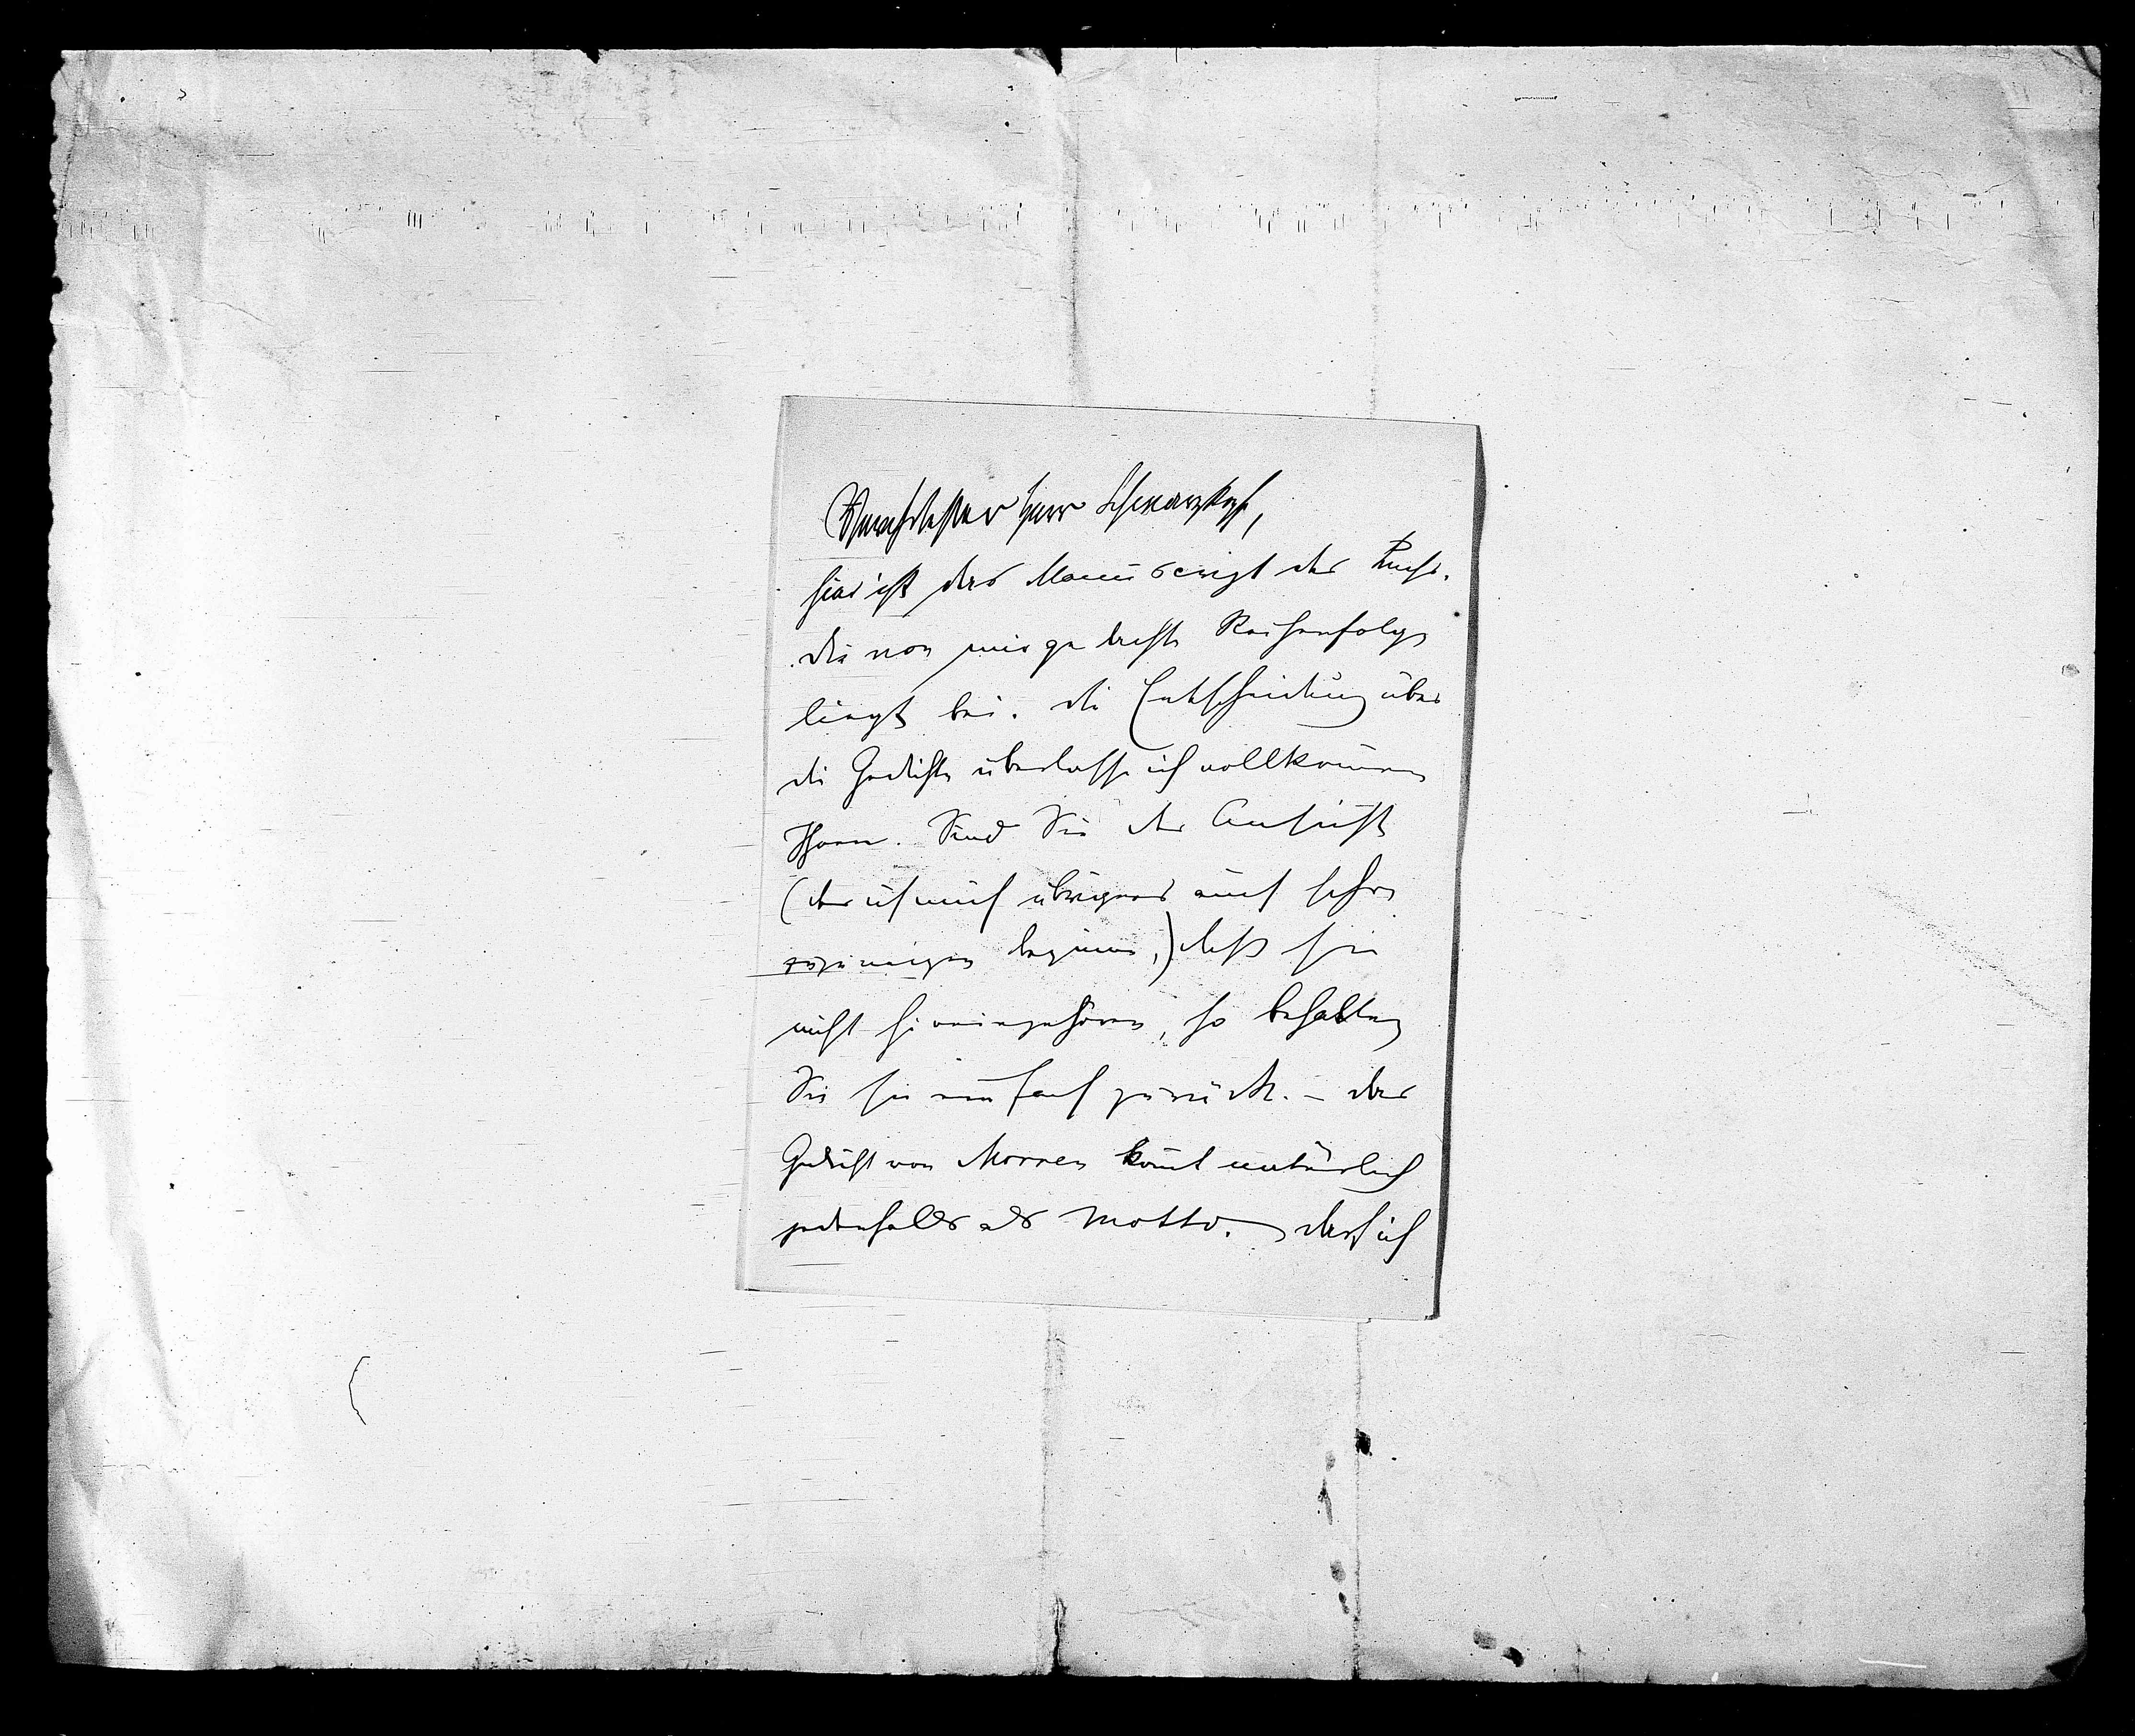 Verehrtester Herr Schwarzkopf,
hier ist das Manuscript des Buchs.
die von mir gedachte Reihenfolge
liegt bei. die Entscheidung über
die Gedichte überlasse ich vollkom̄en
Ihnen. Sind Sie der Ansicht
(der ich mich übrigens auch schon
zuzuneigen beginne,) dass sie
nicht hineingehören, so behalten
Sie sie einfach zurück. – das
Gedicht von Morren kom̄t natürlich
jedenfalls als Motto. darf ich